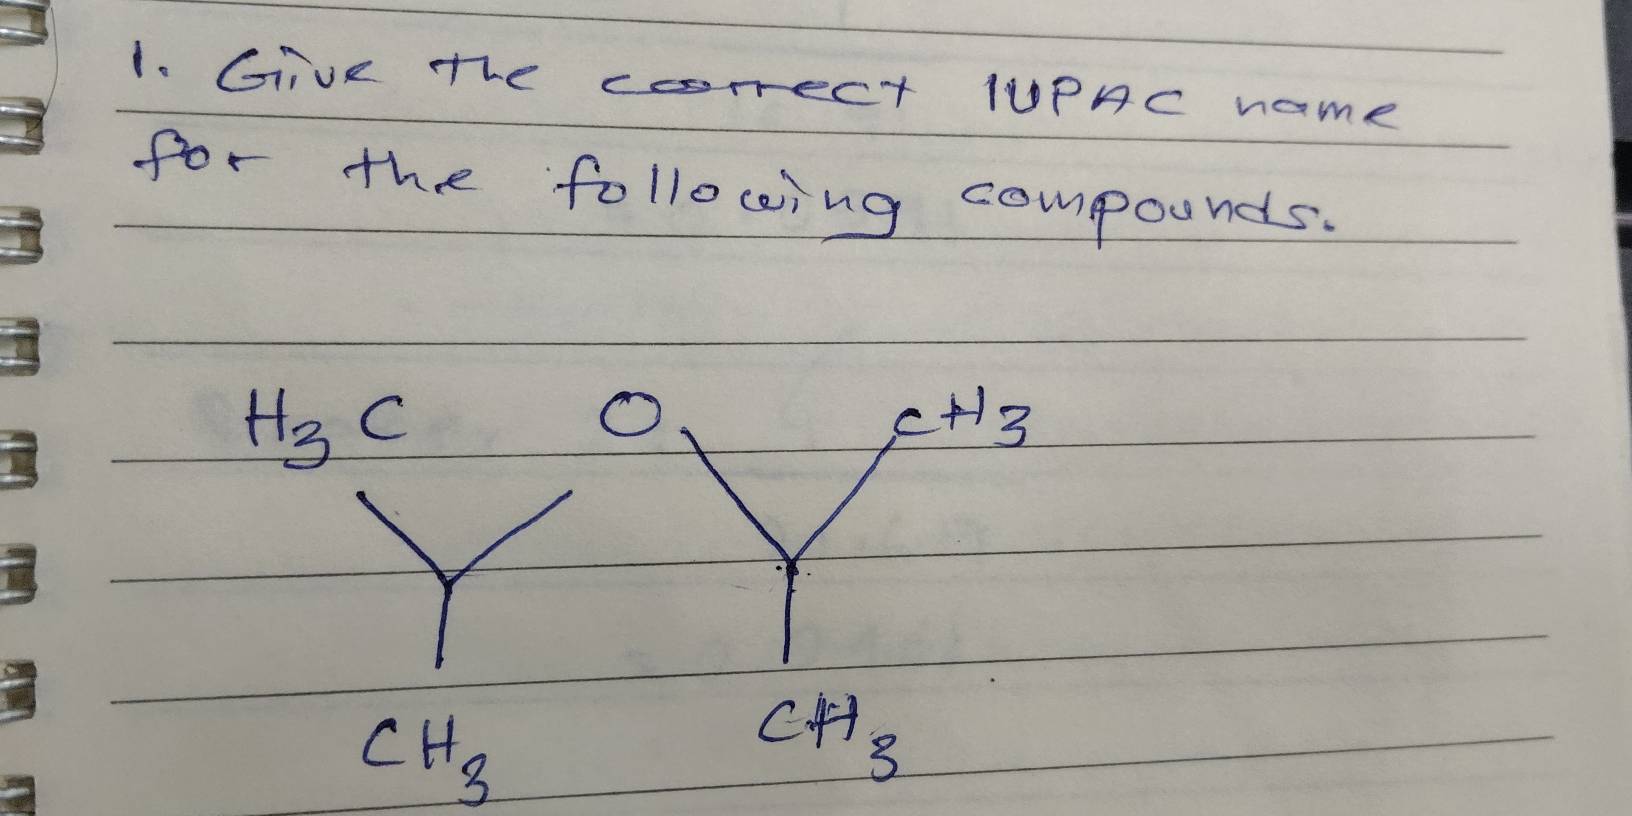 1. Give the correct IUPAC name
for the following compounds.
H3C O CH3
CH3 CH3